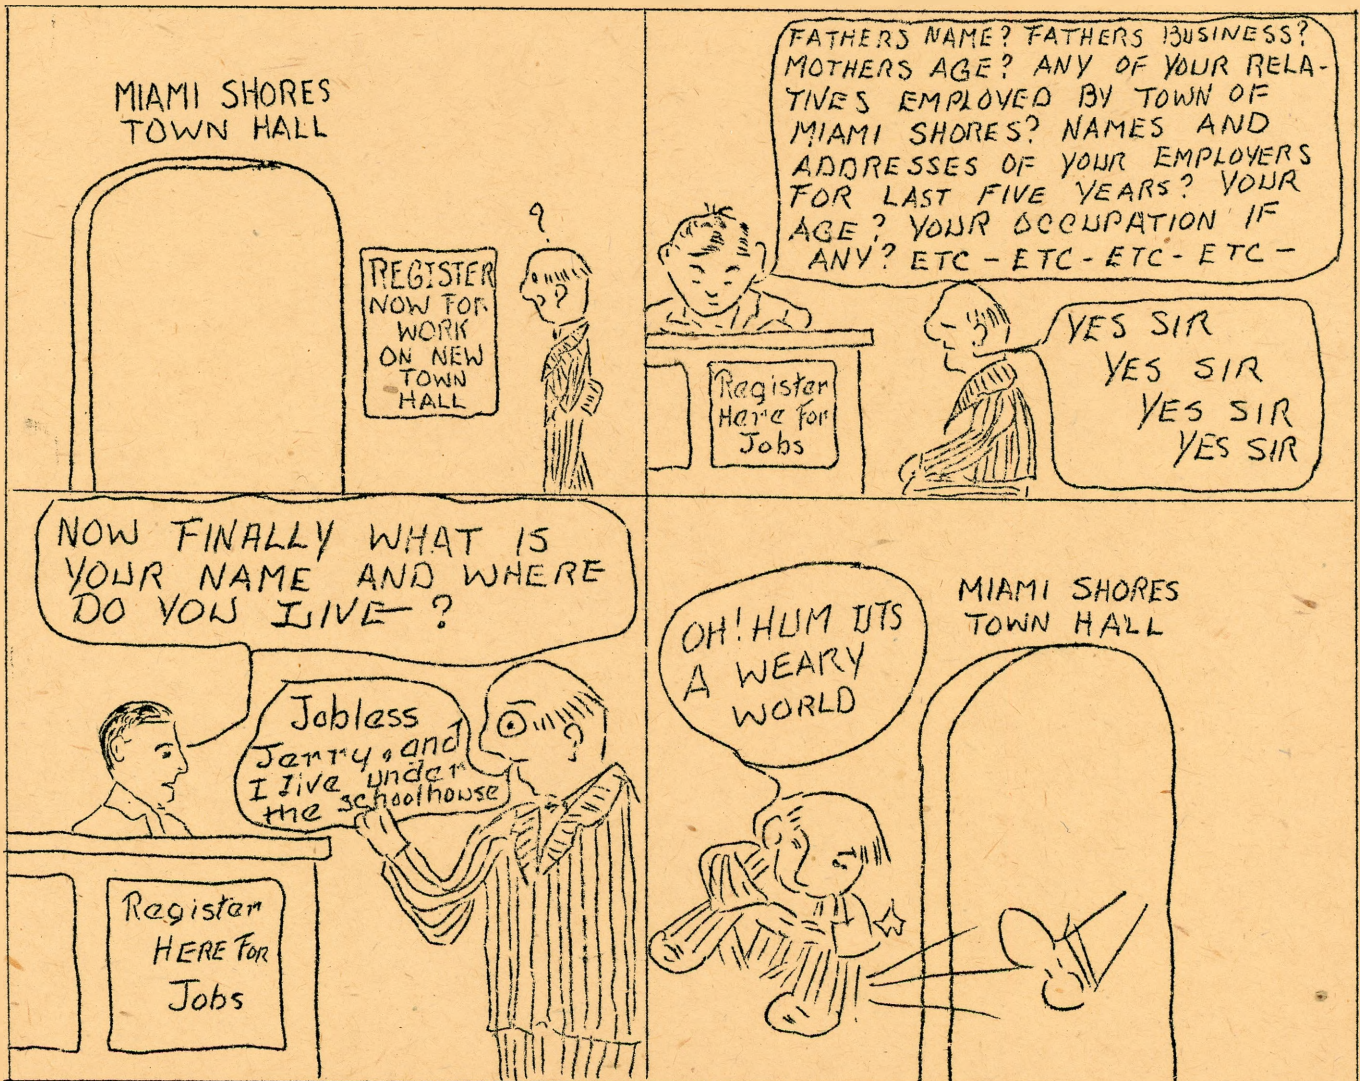 MIAMI SHORES
TOWN HALL
?
REGISTER
NOW FOR
WORK
ON NEW
TOWN
HALL
FATHERS NAME? FATHERS BUSINESS?
MOTHERS AGE? ANY OF YOUR RELA-
TIVES EMPLOYED BY TOWN OF
MIAMI SHORES? NAMES AND
ADDRESSES OF YOUR EMPLOYERS
FOR LAST FIVE YEARS? YOUR
AGE? YOUR OCCUPATION IF
ANY? ETC - ETC - ETC - ETC -
YES SIR
YES SIR
YES SIR
YES SIR
Register
Here For
Jobs
NOW FINALLY WHAT IS
YOUR NAME AND WHERE
DO YOU LIVE ?
Jobless
Jerry, and
I live under
the schoolhouse
Register
HERE FOR
Jobs
OH! HUM ITS
A WEARY
WORLD
MIAMI SHORES
TOWN HALL